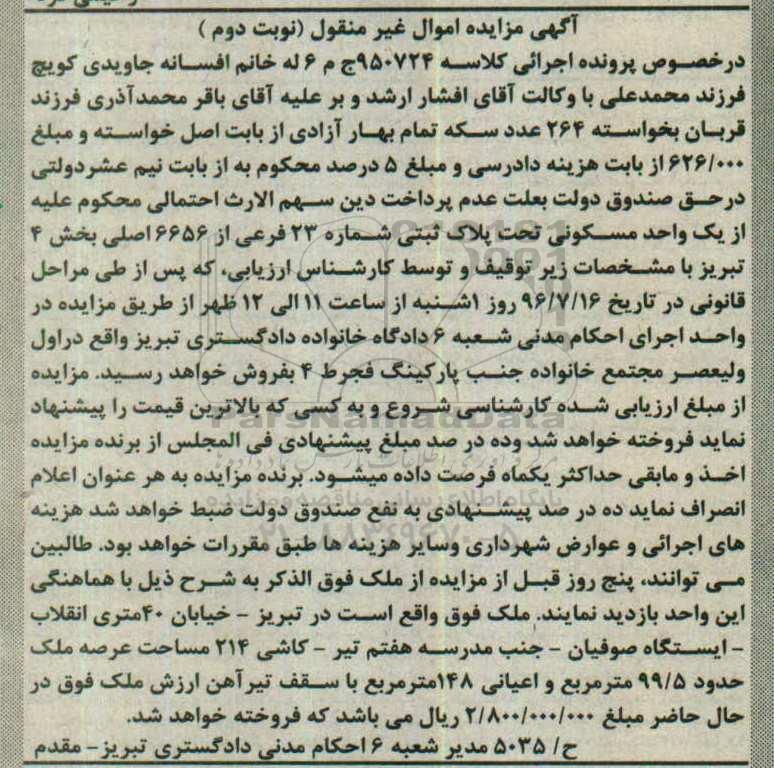 آگهی مزایده اموال غیر منقول (نوبت دوم )
درخصوص پرونده اجرائی کلاسه ۹۵۰۷۲۴ج م ۶ له خانم افسانه جاویدی کویچ
فرزند محمدعلی با وکالت آقای افشار ارشد و بر علیه آقای باقر محمدآذری فرزند
قربان بخواسته ۲۶۴ عدد سکه تمام بهار آزادی از بابت اصل خواسته و مبلغ
۶۲۶/۰۰۰ از بابت هزینه دادرسی و مبلغ ۵ درصد محکوم به از بابت نیم عشردولتی
درحق صندوق دولت بعلت عدم پرداخت دین سهم الارث احتمالی محکوم علیه
از یک واحد مسکونی تحت پلاک ثبتی شماره ۲۳ فرعی از ۶۶۵۶ اصلی بخش ۴
تبریز با مشخصات زیر توقیف و توسط کارشناس ارزیابی، که پس از طی مراحل
قانونی در تاریخ ۹۶/۷/۱۶ روز ۱شنبه از ساعت ۱۱ الی ۱۲ ظهر از طریق مزایده در
واحد اجرای احکام مدنی شعبه ۶ دادگاه خانواده دادگستری تبریز واقع دراول
ولیعصر مجتمع خانواده جنب پارکینگ فجرط ۴ بفروش خواهد رسید. مزایده
از مبلغ ارزیابی شده کارشناسی شروع و به کسی که بالاترین قیمت را پیشنهاد
نماید فروخته خواهد شد وده در صد مبلغ پیشنهادی فی المجلس از برنده مزایده
اخذ و مابقی حداکثر یکماه فرصت داده میشود. برنده مزایده به هر عنوان اعلام
انصراف نماید ده در صد پیشنهادی به نفع صندوق دولت ضبط خواهد شد هزینه
های اجرائی و عوارض شهرداری وسایر هزینه ها طبق مقررات خواهد بود. طالبین
می توانند، پنج روز قبل از مزایده از ملک فوق الذکر به شرح ذیل با هماهنگی
این واحد بازدید نمایند. ملک فوق واقع است در تبریز - خیابان ۴۰متری انقلاب
- ایستگاه صوفیان - جنب مدرسه هفتم تیر - کاشی ۲۱۴ مساحت عرصه ملک
حدود ۹۹/۵ مترمربع و اعیانی ۱۴۸مترمربع با سقف تیرآهن ارزش ملک فوق در
حال حاضر مبلغ ۲/۸۰۰/۰۰۰/۰۰۰ ریال می باشد که فروخته خواهد شد.
ح/ ۵۰۳۵ مدیر شعبه ۶ احکام مدنی دادگستری تبریز- مقدم
ParsNamadData